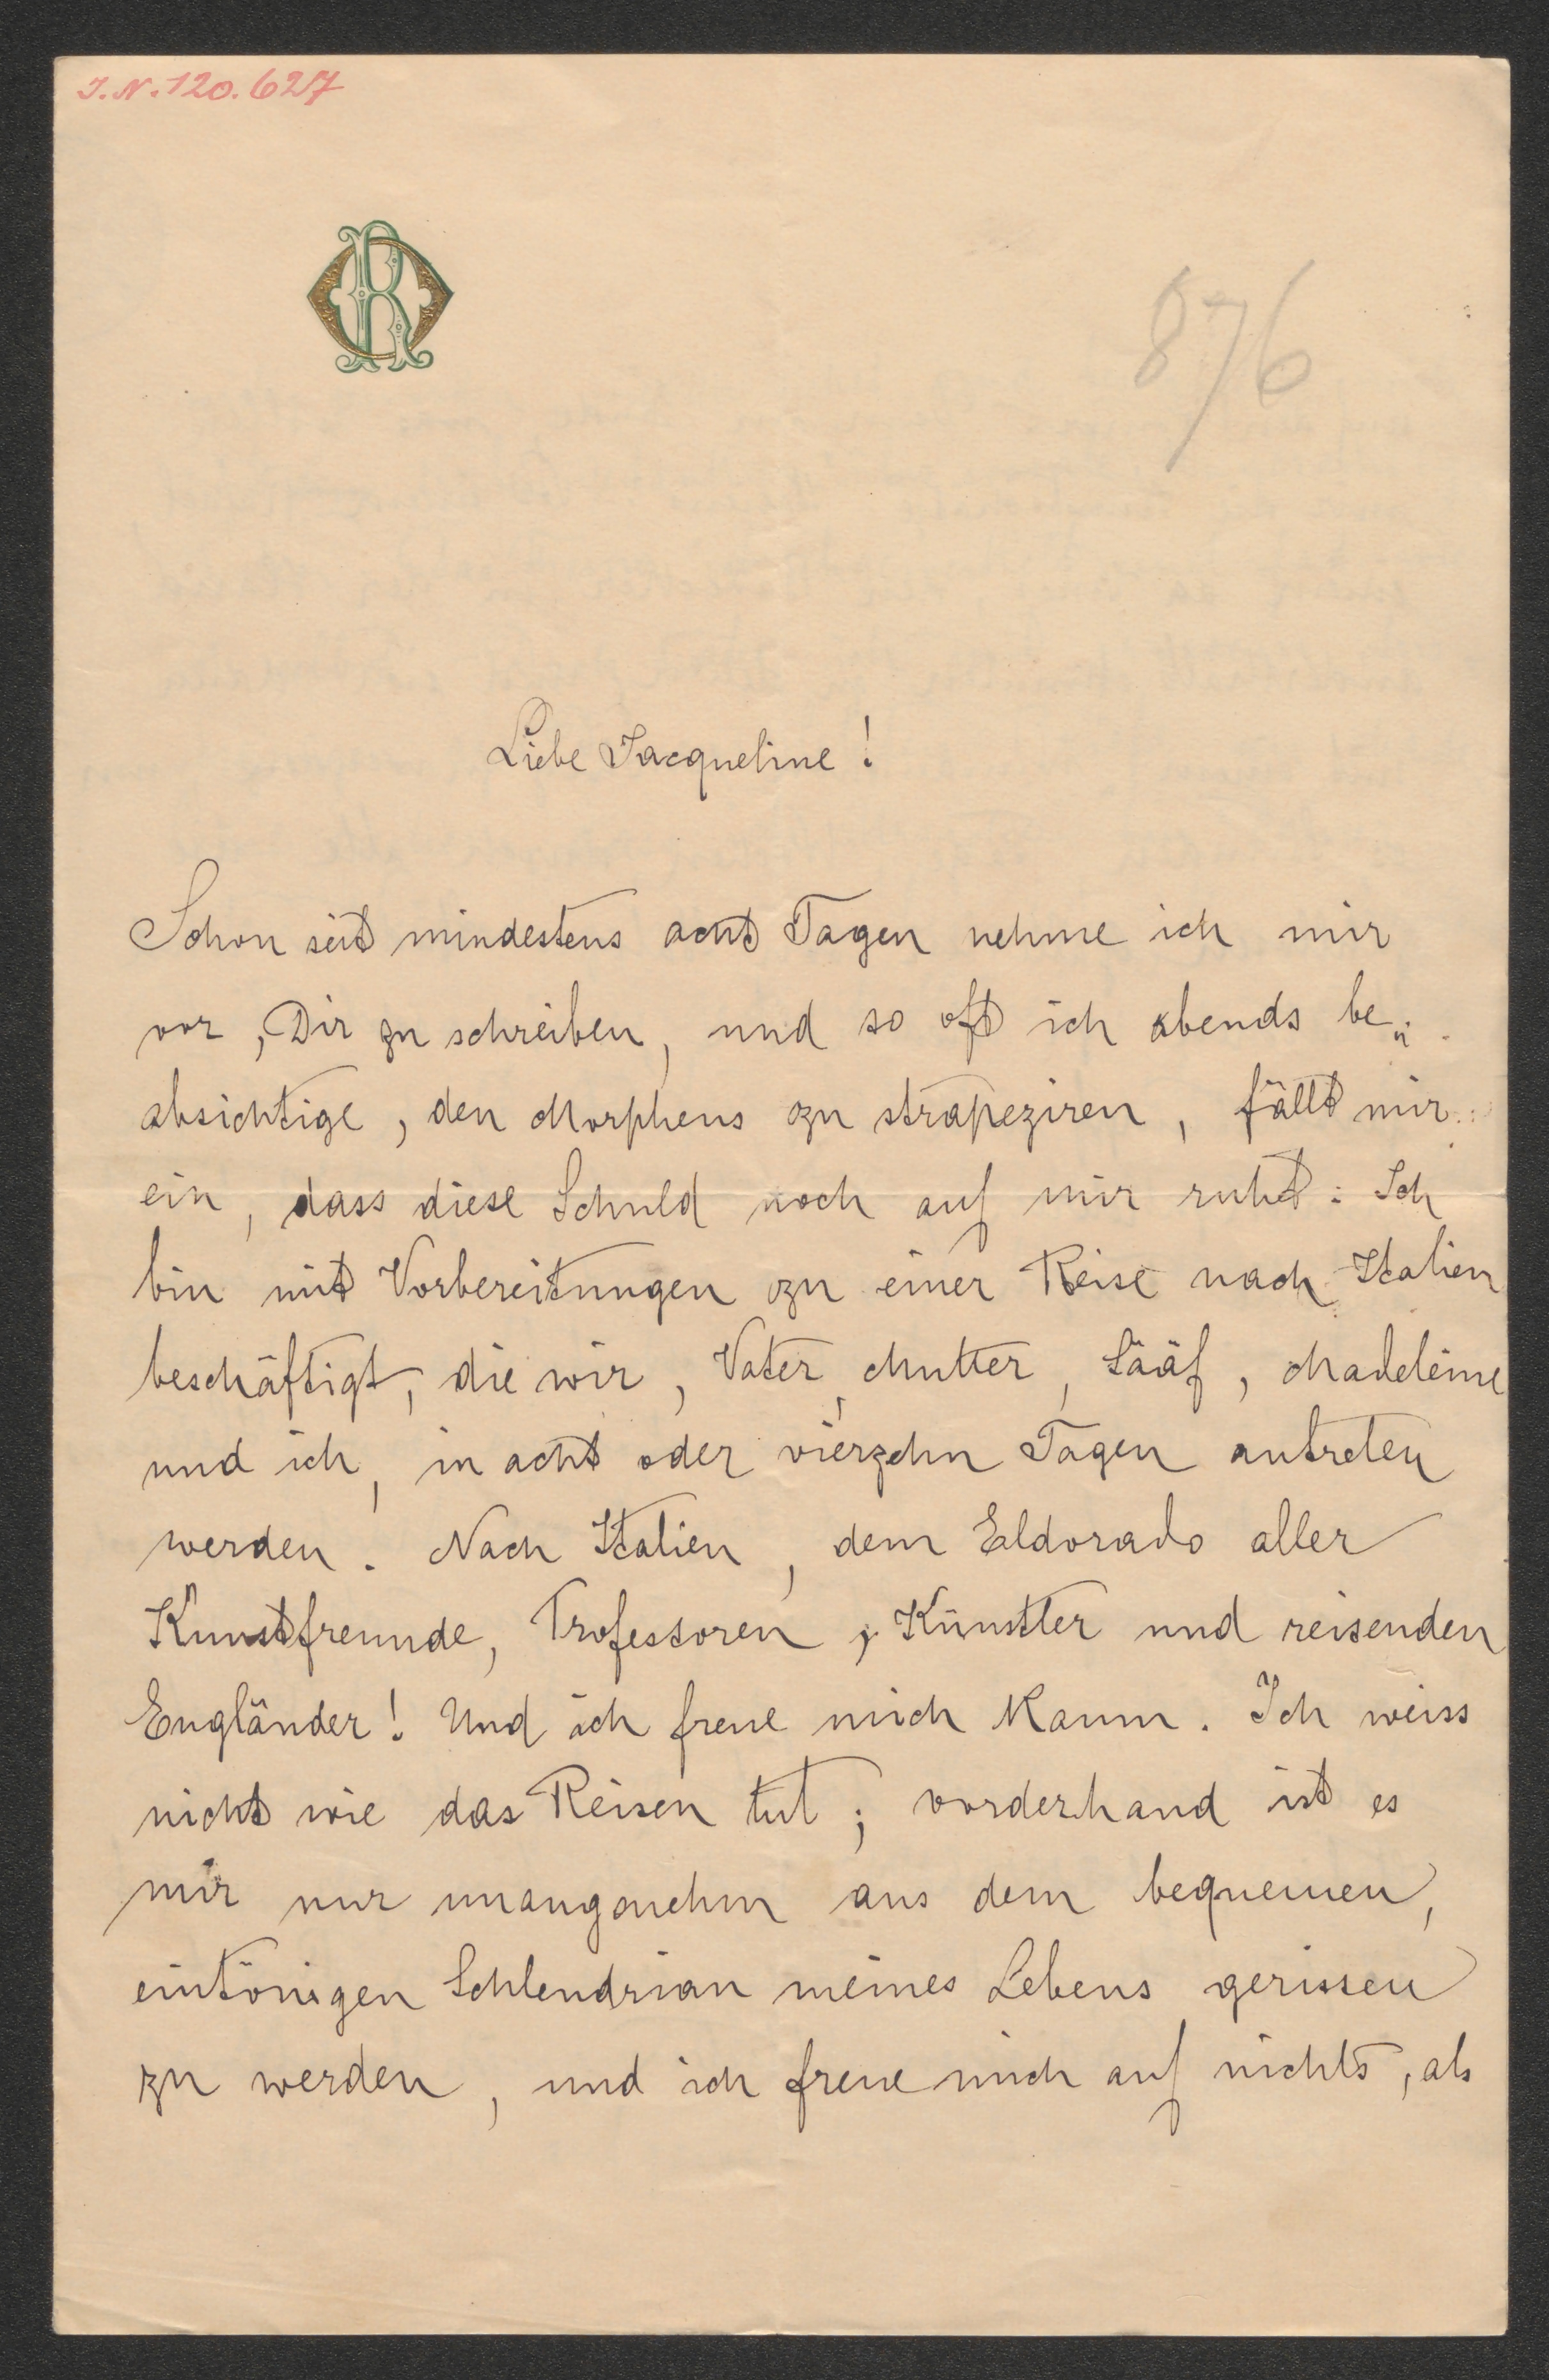 J.N. 120.627
OR
876
Liebe Jacqueline!
Schon seit mindestens acht Tagen nehme ich mir
vor, Dir zu schreiben, und so oft ich abends be„
absichtige, den Morpheus zu strapeziren, fällt mir
ein, dass diese Schuld noch auf mir ruht: Ich
bin mit Vorbereitungen zu einer Reise nach Italien
beschäftigt, die wir, Vater, Mutter, Lääf, Madeleine
und ich, in acht oder vierzehn Tagen antreten
werden. Nach Italien, dem Eldorado aller
Kunstfreunde, Professoren, Künstler und reisenden
Engländer! Und ich freue mich kaum. Ich weiss
nicht wie das Reisen tut; vorderhand ist es
mir nur unangenehm aus dem bequemen,
eintönigen Schlendrian meines Lebens gerissen
zu werden, und ich freue mich auf nichts, als